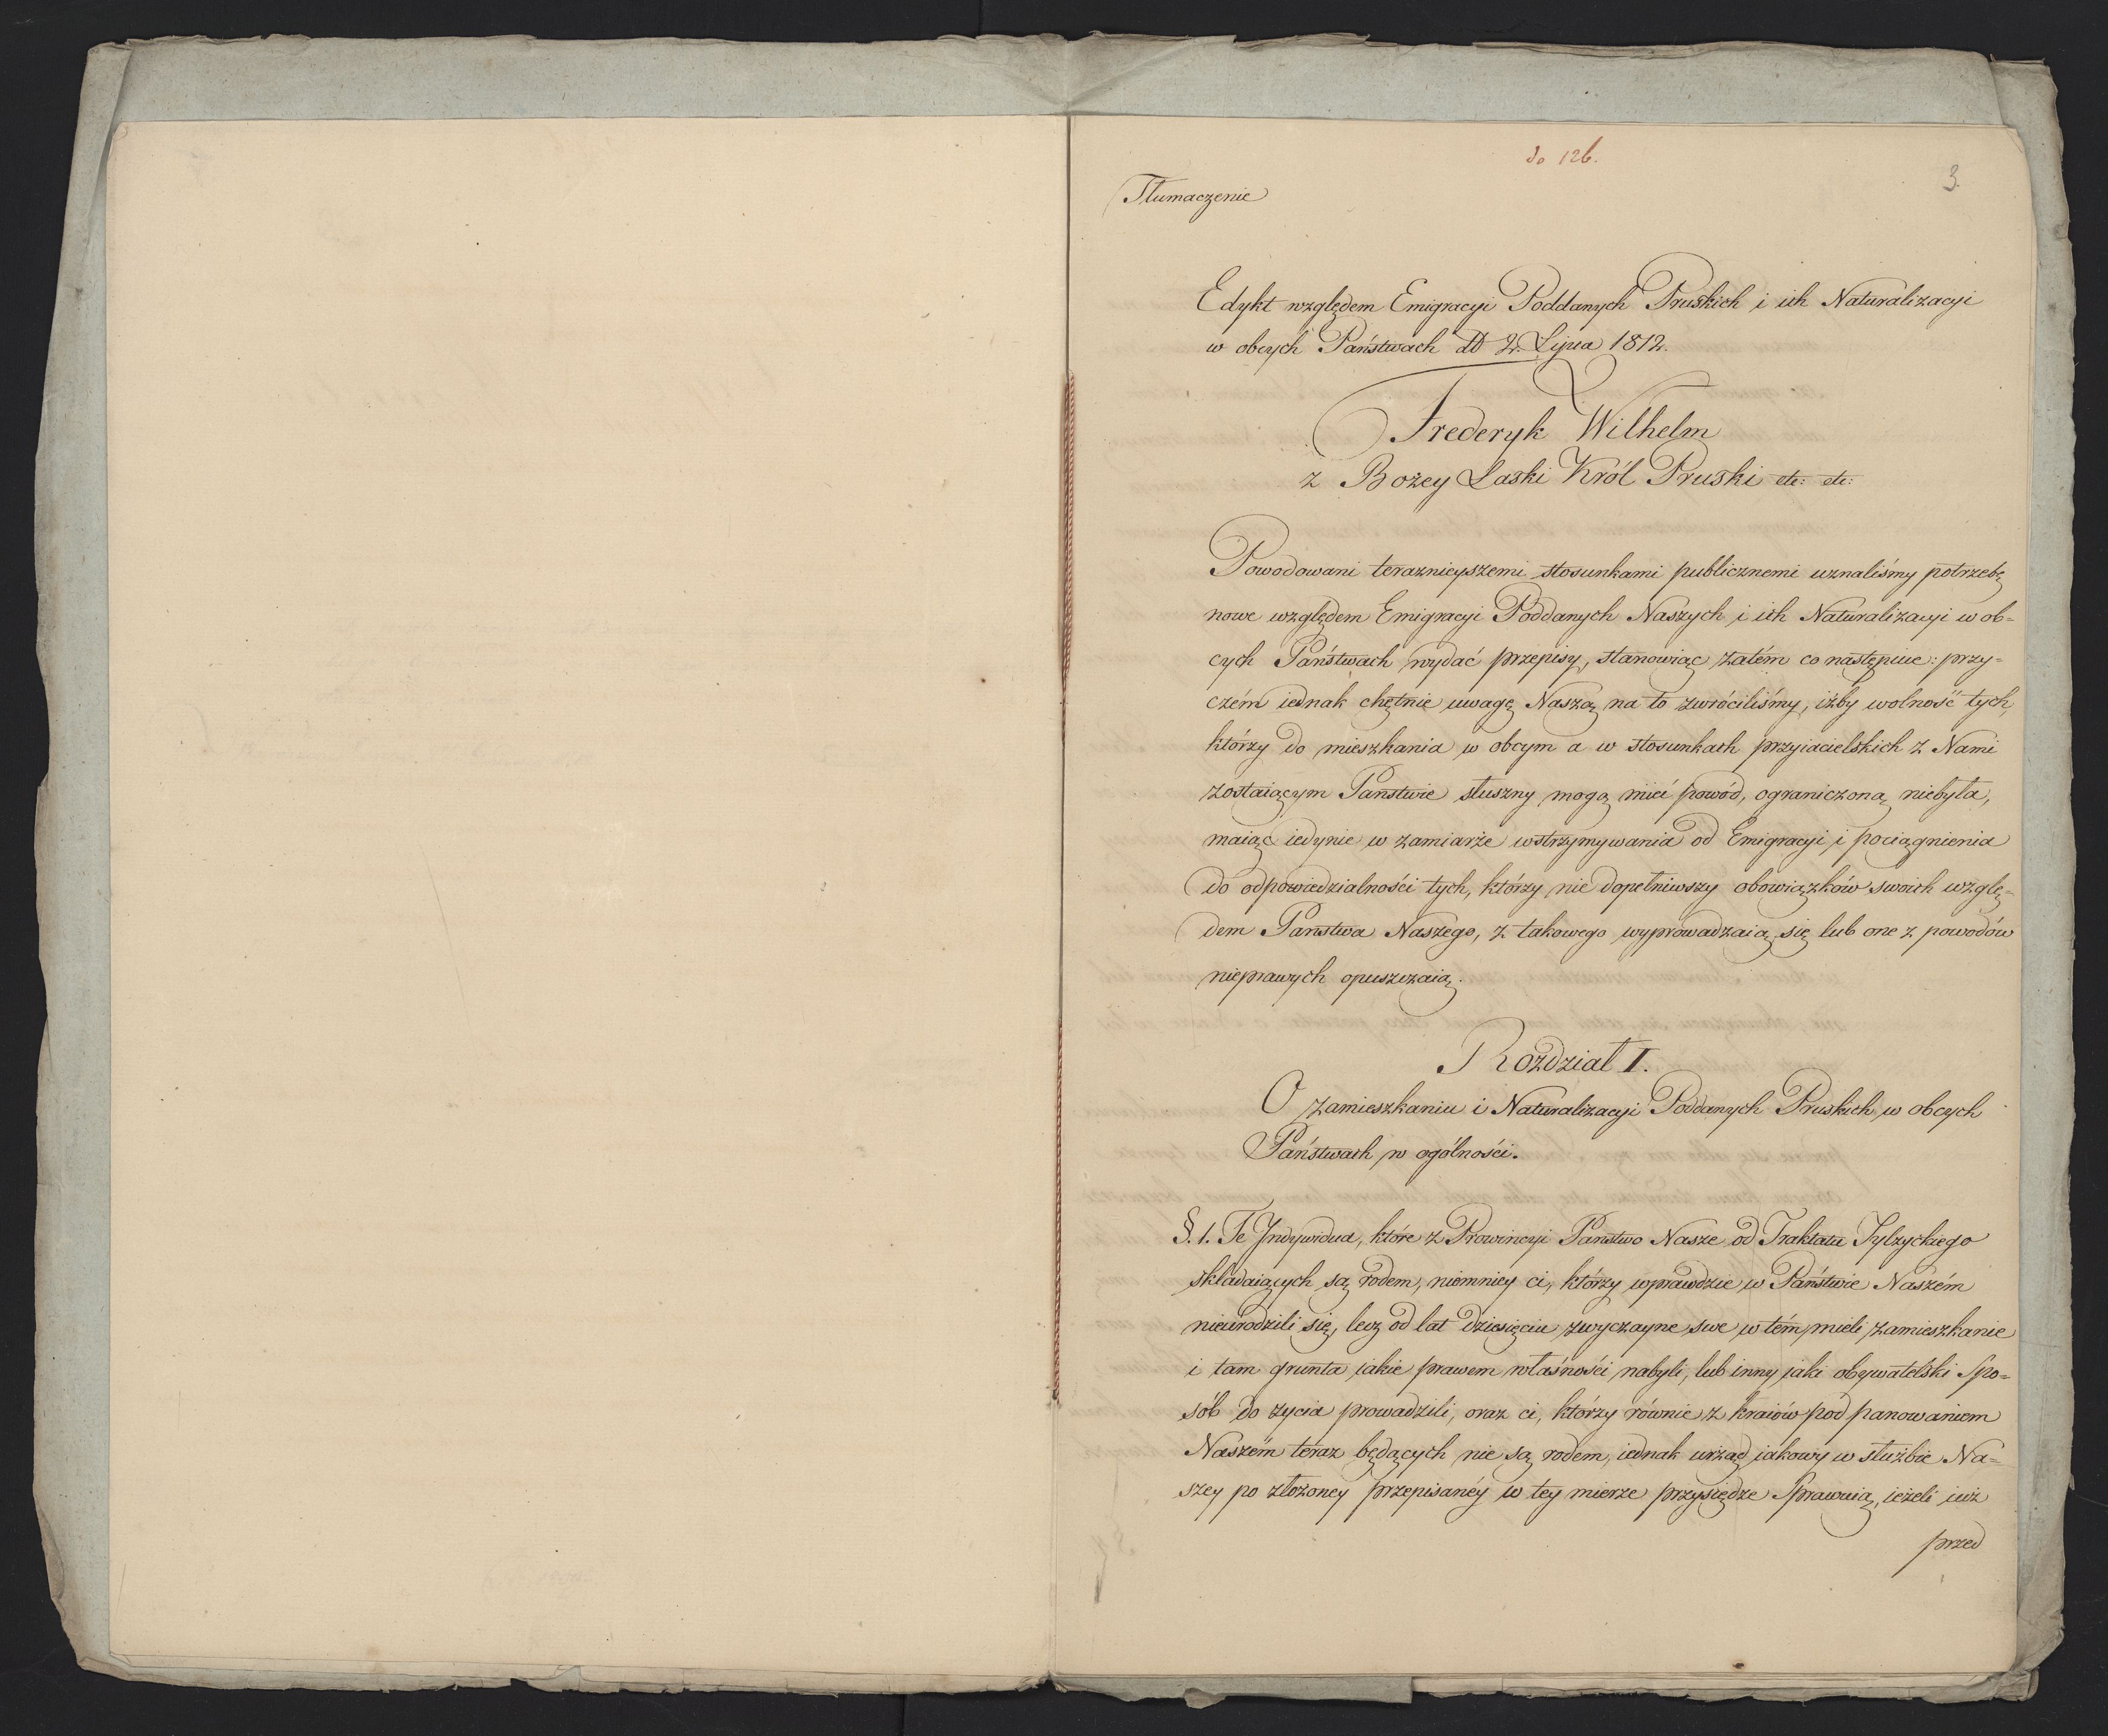 do 126.
3.
Tłumaczenie
Edykt względem Emigracyi Poddanych Pruskich i ich Naturalizacyi
w obcych Państwach dd 2. Lipca 1812.
Frederyk Wilhelm
z Bożey Łaski Król Pruski etc: etc:
Powodowani teraznieyszemi stosunkami publicznemi uznaliśmy potrzebę
nowe względem Emigracyi Poddanych Naszych i ich Naturalizacyi w ob=
cych Państwach wydać przepisy, stanowiąc zatém co następuie: przy=
czém iednak chętnie uwagę Naszą na to zwróciliśmy, iżby wolność tych,
którzy do mieszkania w obcym a w stosunkach przyiacielskich z Nami
zostaiącym Państwie słuszny mogą mieć powód, ograniczoną niebyła,
maiąc iedynie w zamiarze wstrzymywania od Emigracyi i pociągnienia
do odpowiedzialności tych, którzy nie dopełniwszy obowiązków swoich wzglę=
dem Państwa Naszego, z takowego wyprowadzaią się lub one z powodów
nieprawych opuszczaią.
Rozdział I.
O zamieszkaniu i Naturalizacyi Poddanych Pruskich w obcych
Państwach w ogólności.
§. 1. Te Indywidua, które z Prowincyi Państwo Nasze od Traktatu Tylzyckiego
składaiących są rodem, niemniey ci, którzy wprawdzie w Państwie Naszém
nieurodzili się, lecz od lat dziesięciu zwyczayne swe w tém mieli zamieszkanie
i tam grunta iakie prawem własności nabyli, lub inny jaki obywatelski spo=
sób do zycia prowadzili, oraz ci, którzy równie z kraiów pod panowaniem
Naszém teraz będących nie są rodem, iednak urząd iakowy w służbie Na=
szey po złożoney przepisanéy w tey mierze przysiędze sprawuią, ieżeli iuż
przed